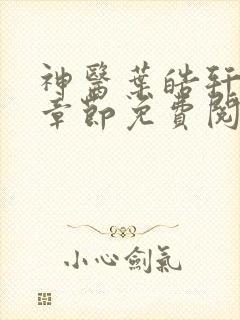 神醫葉皓軒
章節免費閱
小心劍氣